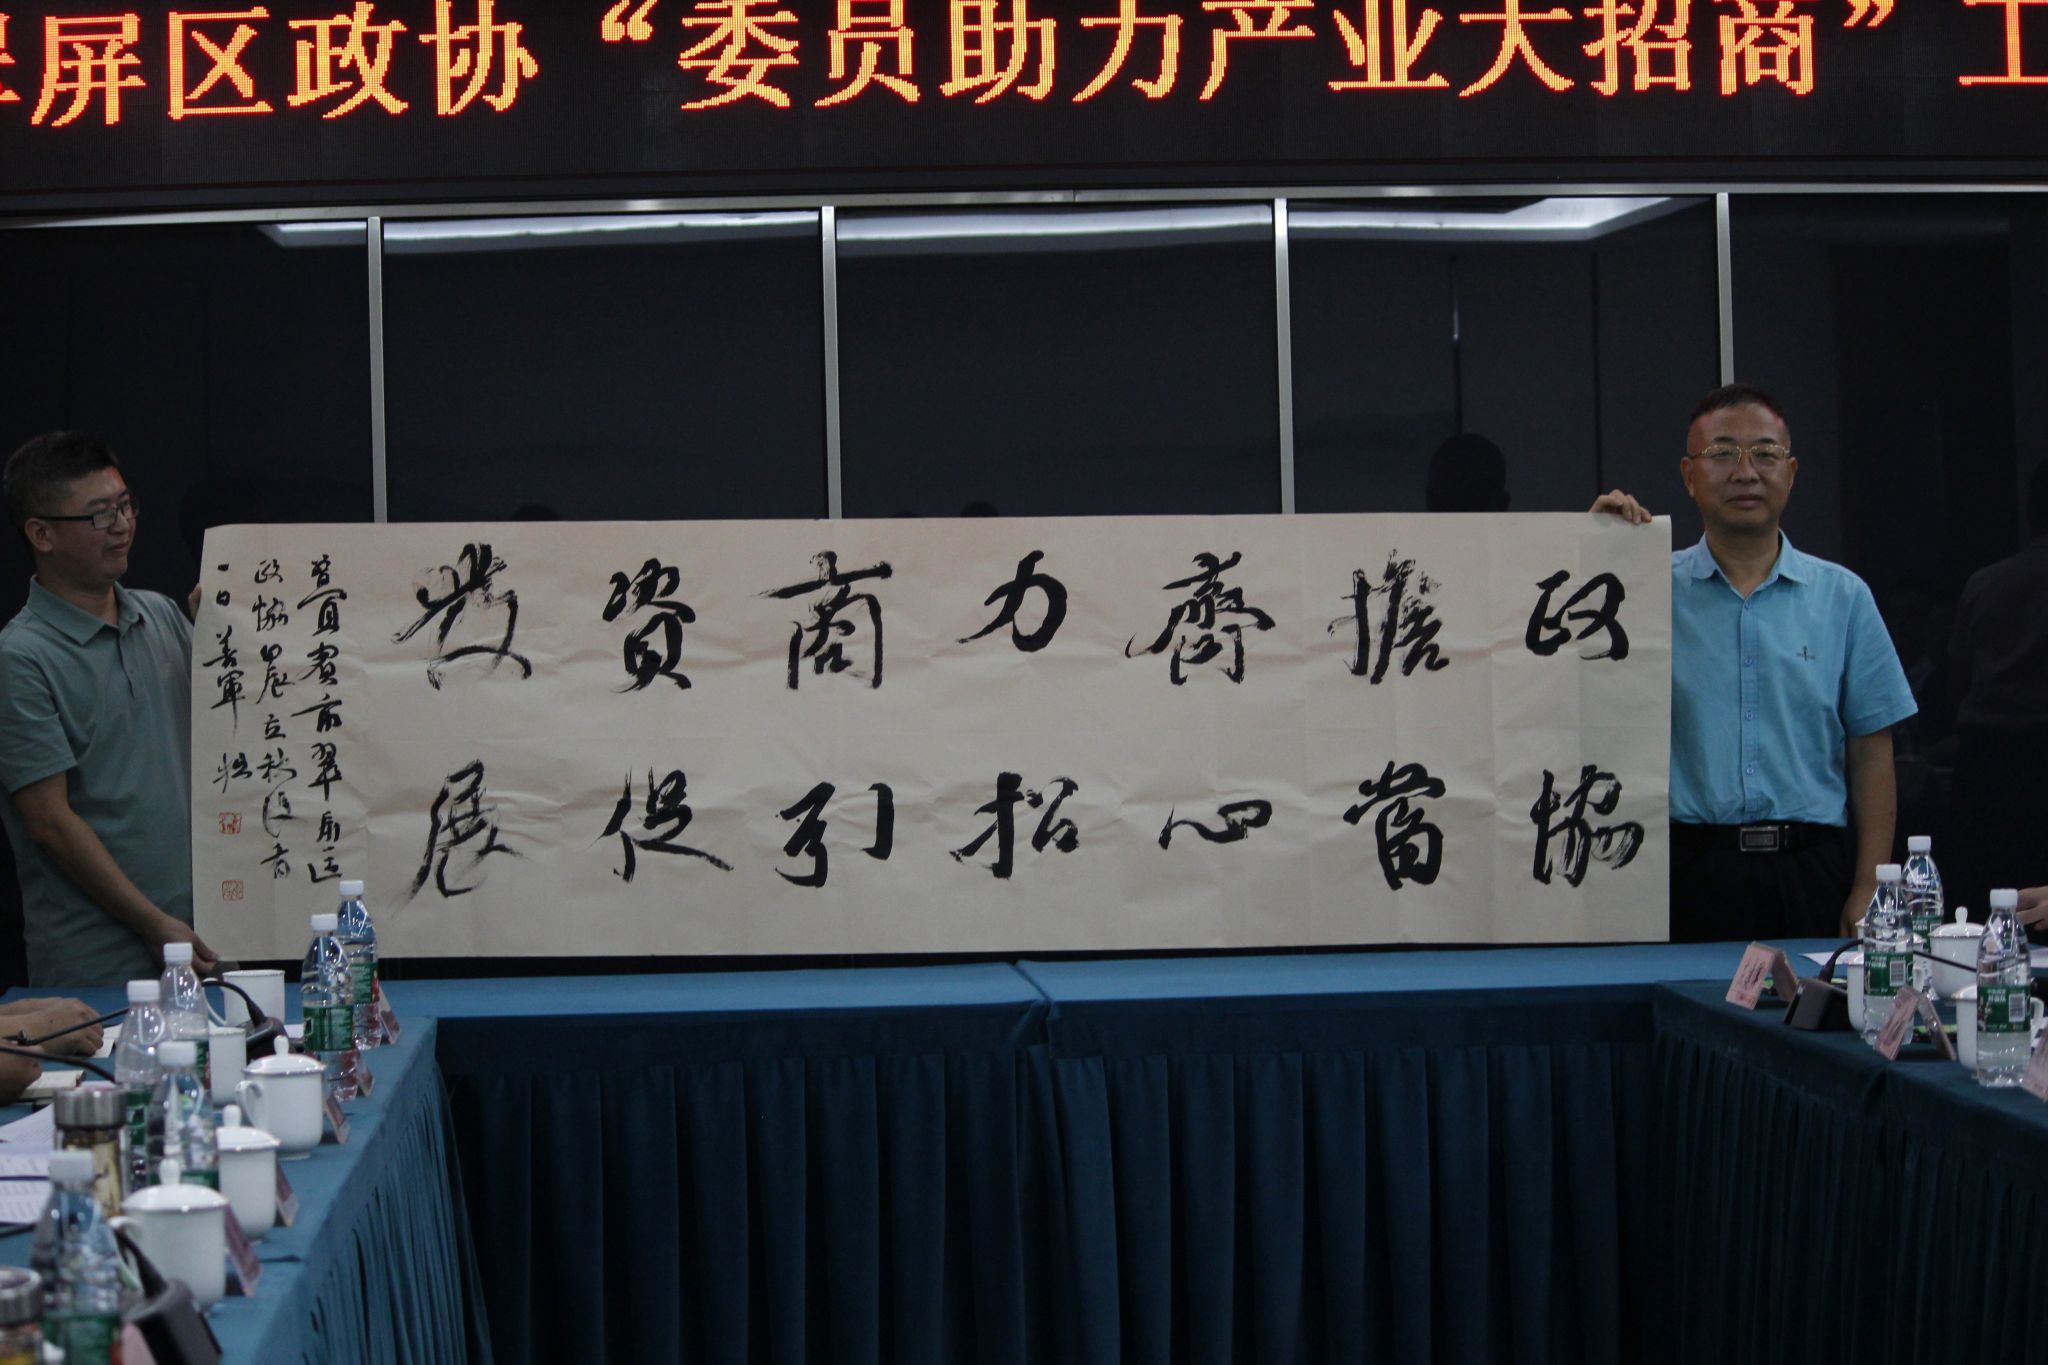 屏区政协“委员助力产业大招商”工
政協
擔當
齊心
力招
商引
資促
發展
宜賓市翠屏区
政協 立秋
一日善軍